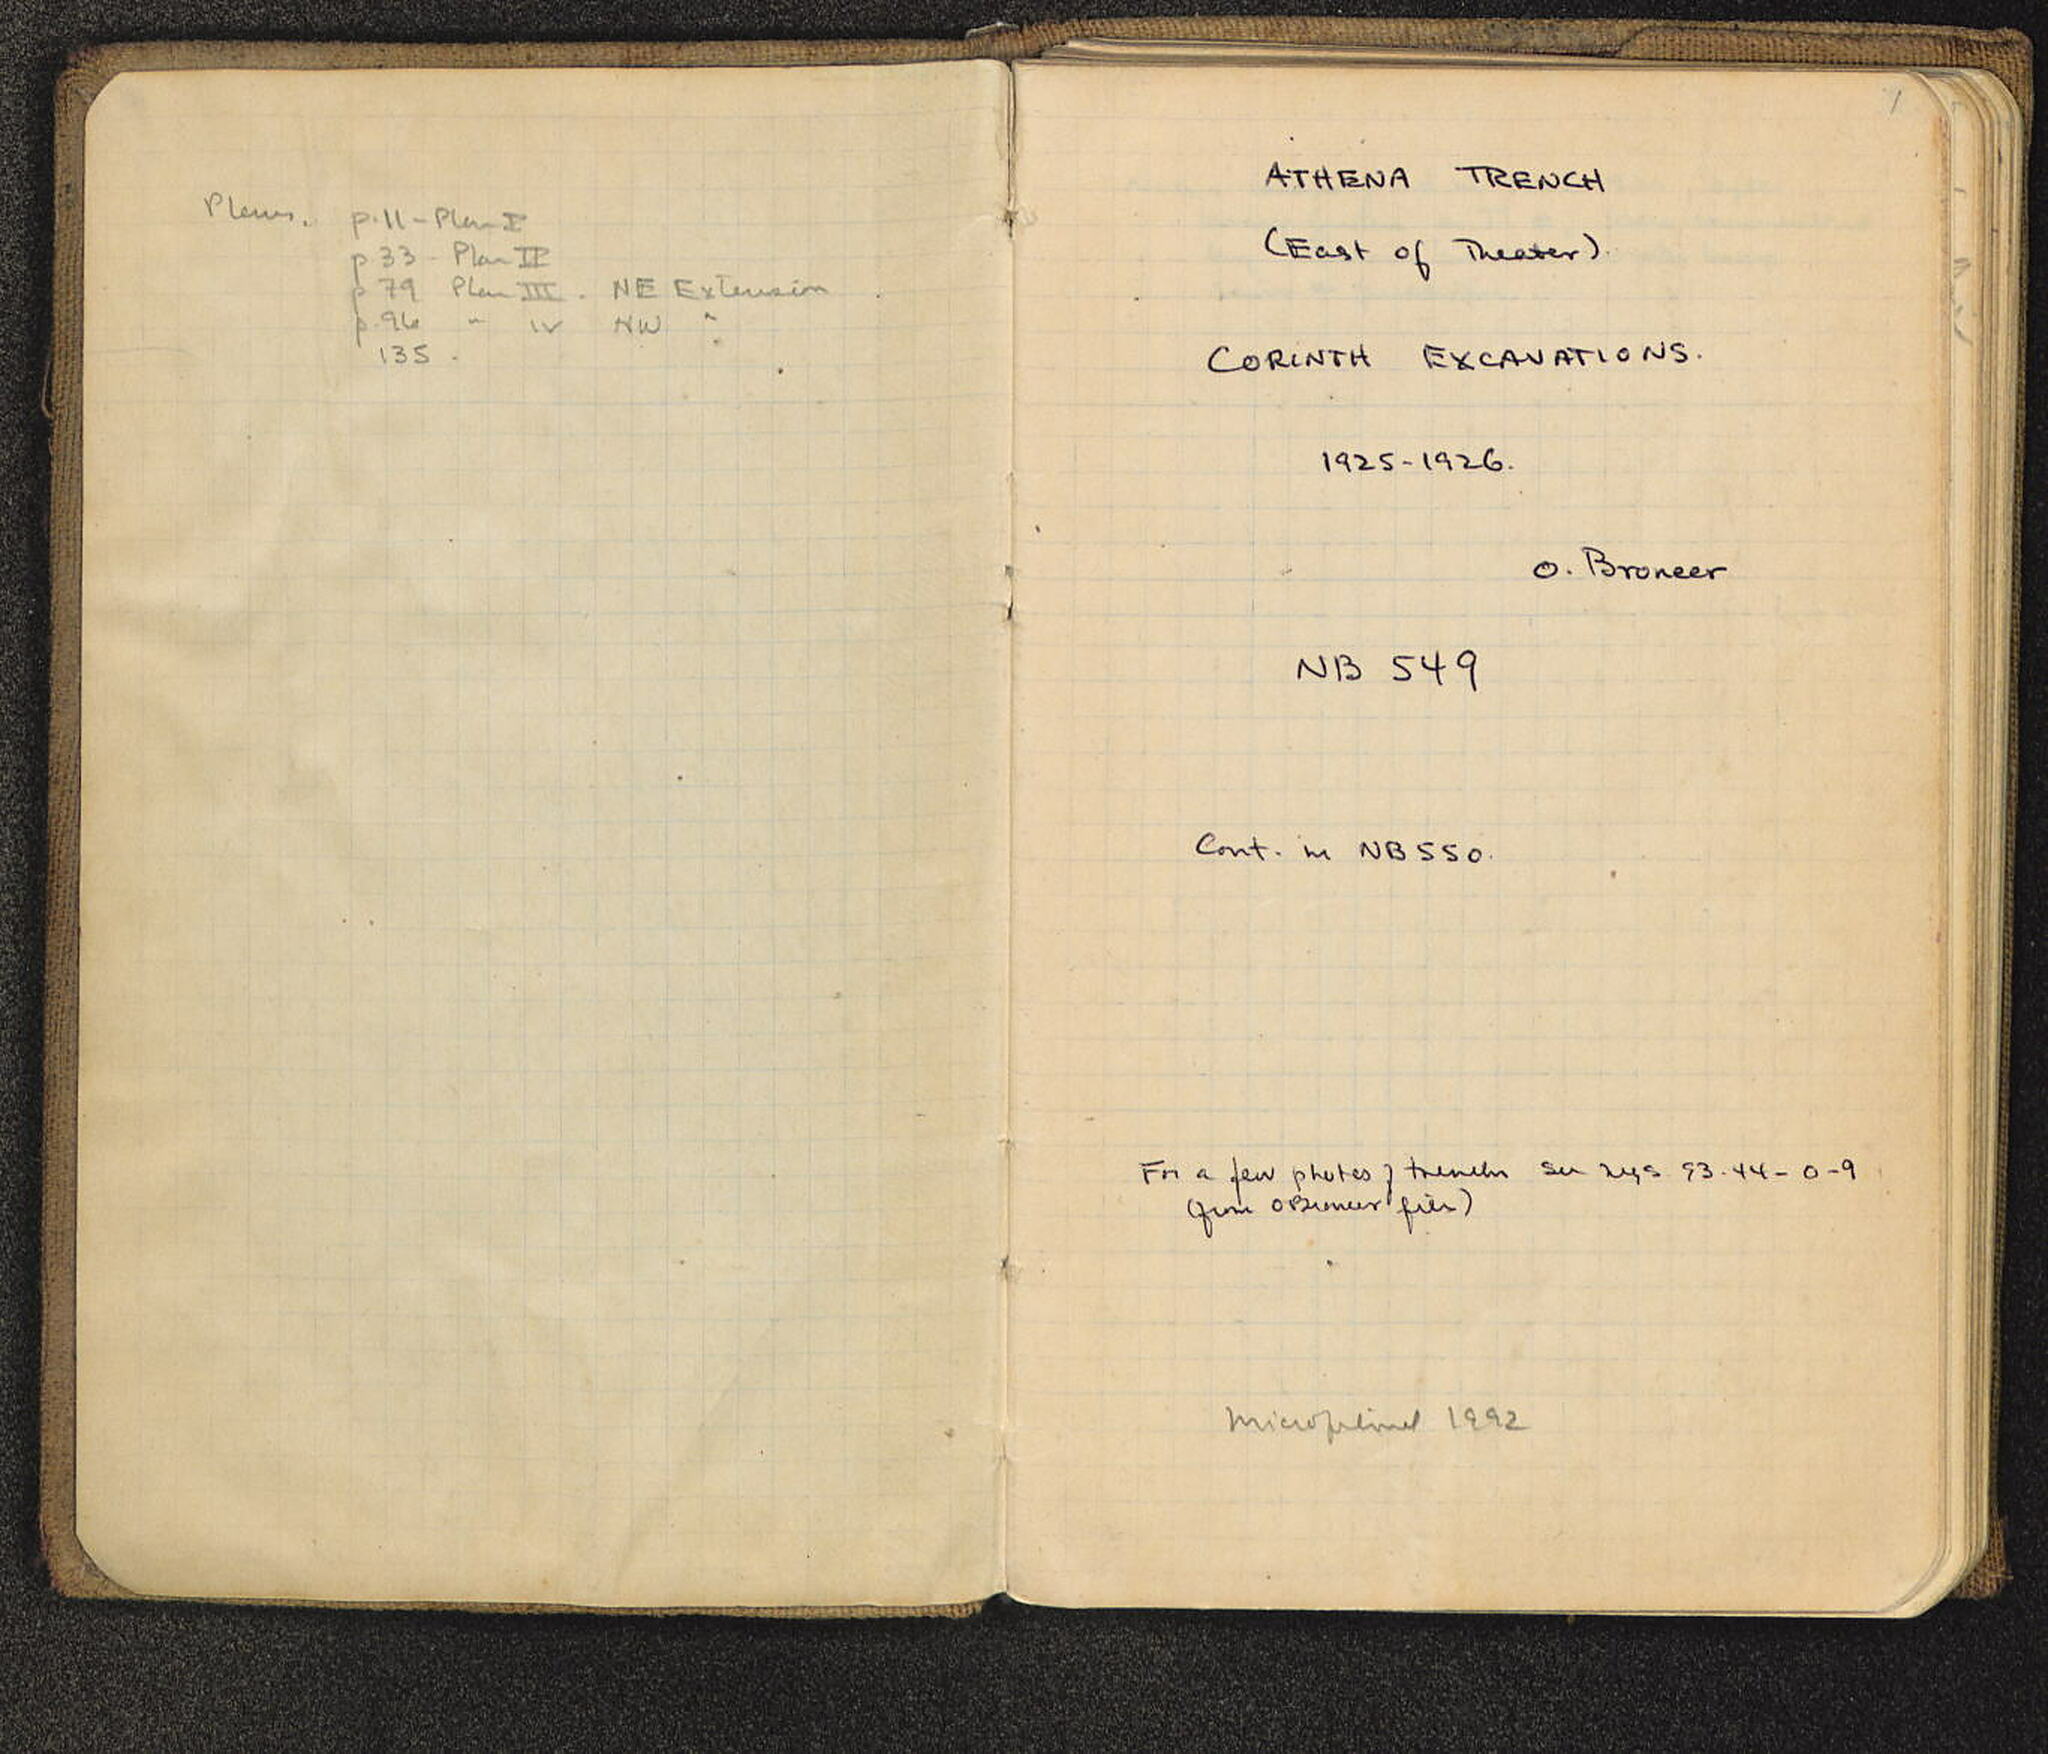 Plans. p.11 - Plan I
p 33 - Plan II
p 79 Plan III. NE Extension
p.96 " IV NW "
135.
1
ATHENA TRENCH
(East of Theater)
CORINTH EXCAVATIONS.
1925-1926.
O. Broneer
NB 549
Cont. in NB 550.
For a few photos of trench see negs 93-44-0-9
(from O Broneer files)
Microfilmed 1992